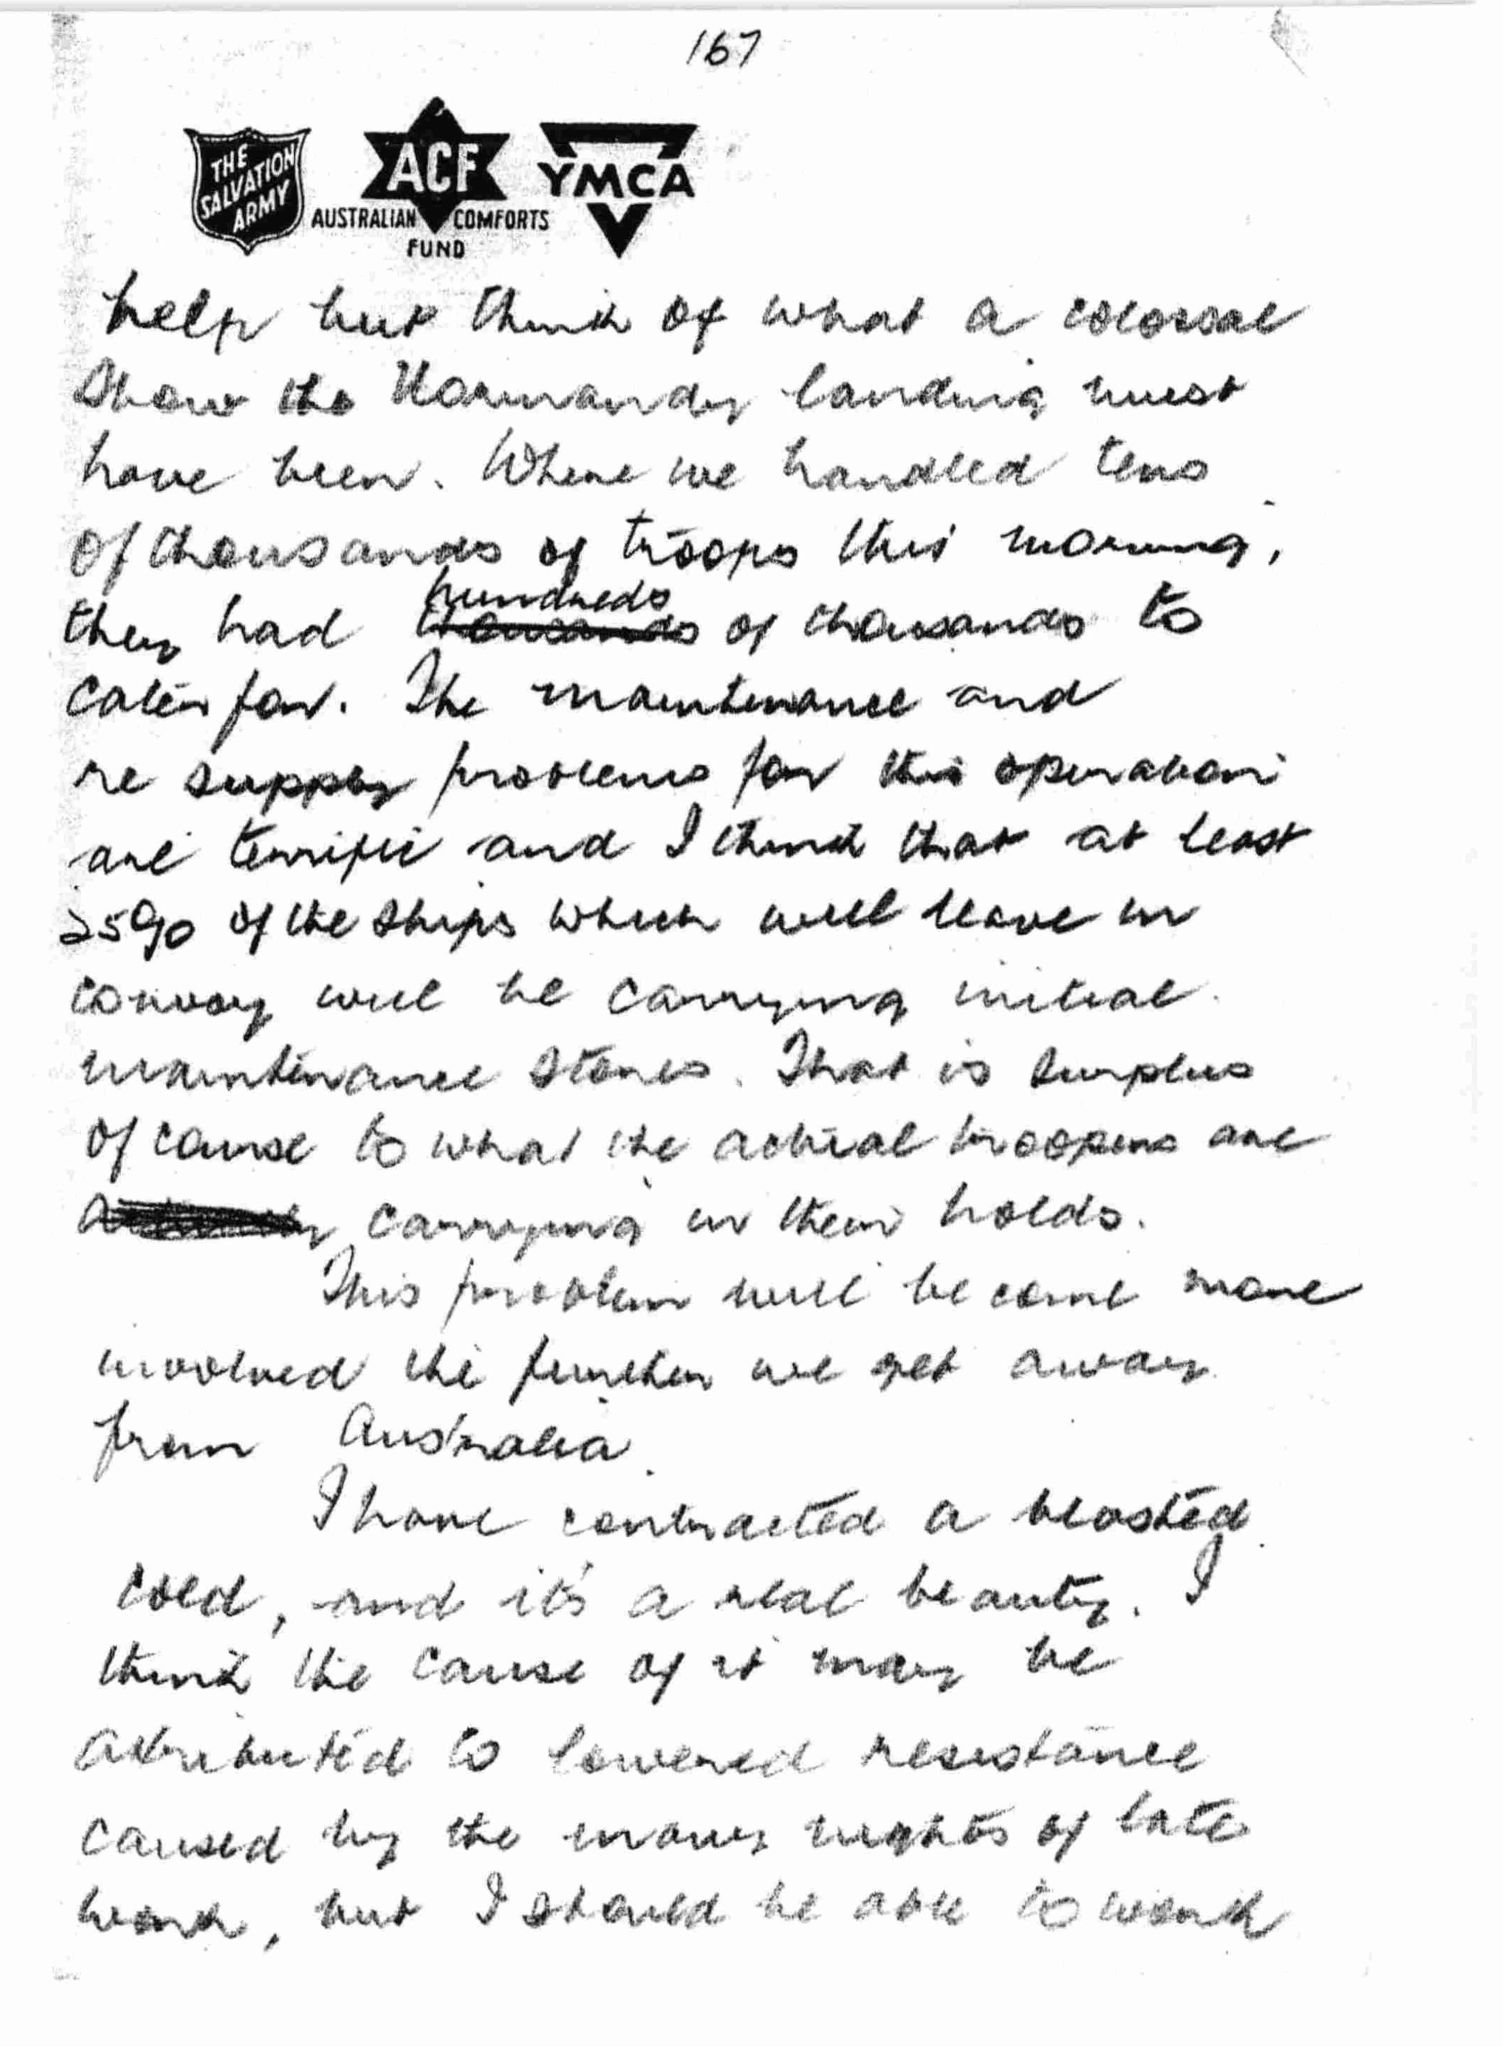 167
THE SALVATION ARMY
ACF
AUSTRALIAN COMFORTS FUND
YMCA
help but think of what a colossal
show the Normandy landing must
have been. Where we handled tens
of thousands of troops this morning,
they had thousands hundreds of thousands to
cater for. The maintenance and
re supply problems for this operation
are terrific and I think that at least
25% of the ships which will leave in
convoy will be carrying initial
maintenance stores. That is surplus
of cause to what the actual troopers are
carrying in their holds.
This problem will become more
involved the further we get away
from Australia.
I have contracted a blasted
cold, and it's a real beauty. I
think the cause of it may be
atributed to lowered resistance
caused by the many nights of late
work, but I should be able to work